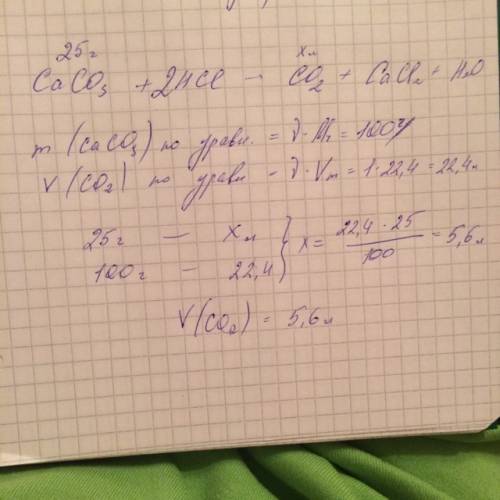 25г хл
CaCO₃ + 2HCl — CO₂ + CaCl₂ + H₂O
m (CaCO₃) по уравн. = ν · Mr = 100г
V (CO₂) по уравн = ν · Vm = 1 · 22,4 = 22,4л
25г — Xл } X = 22,4 · 25 / 100 = 5,6л
100г — 22,4
V(CO₂) = 5,6л